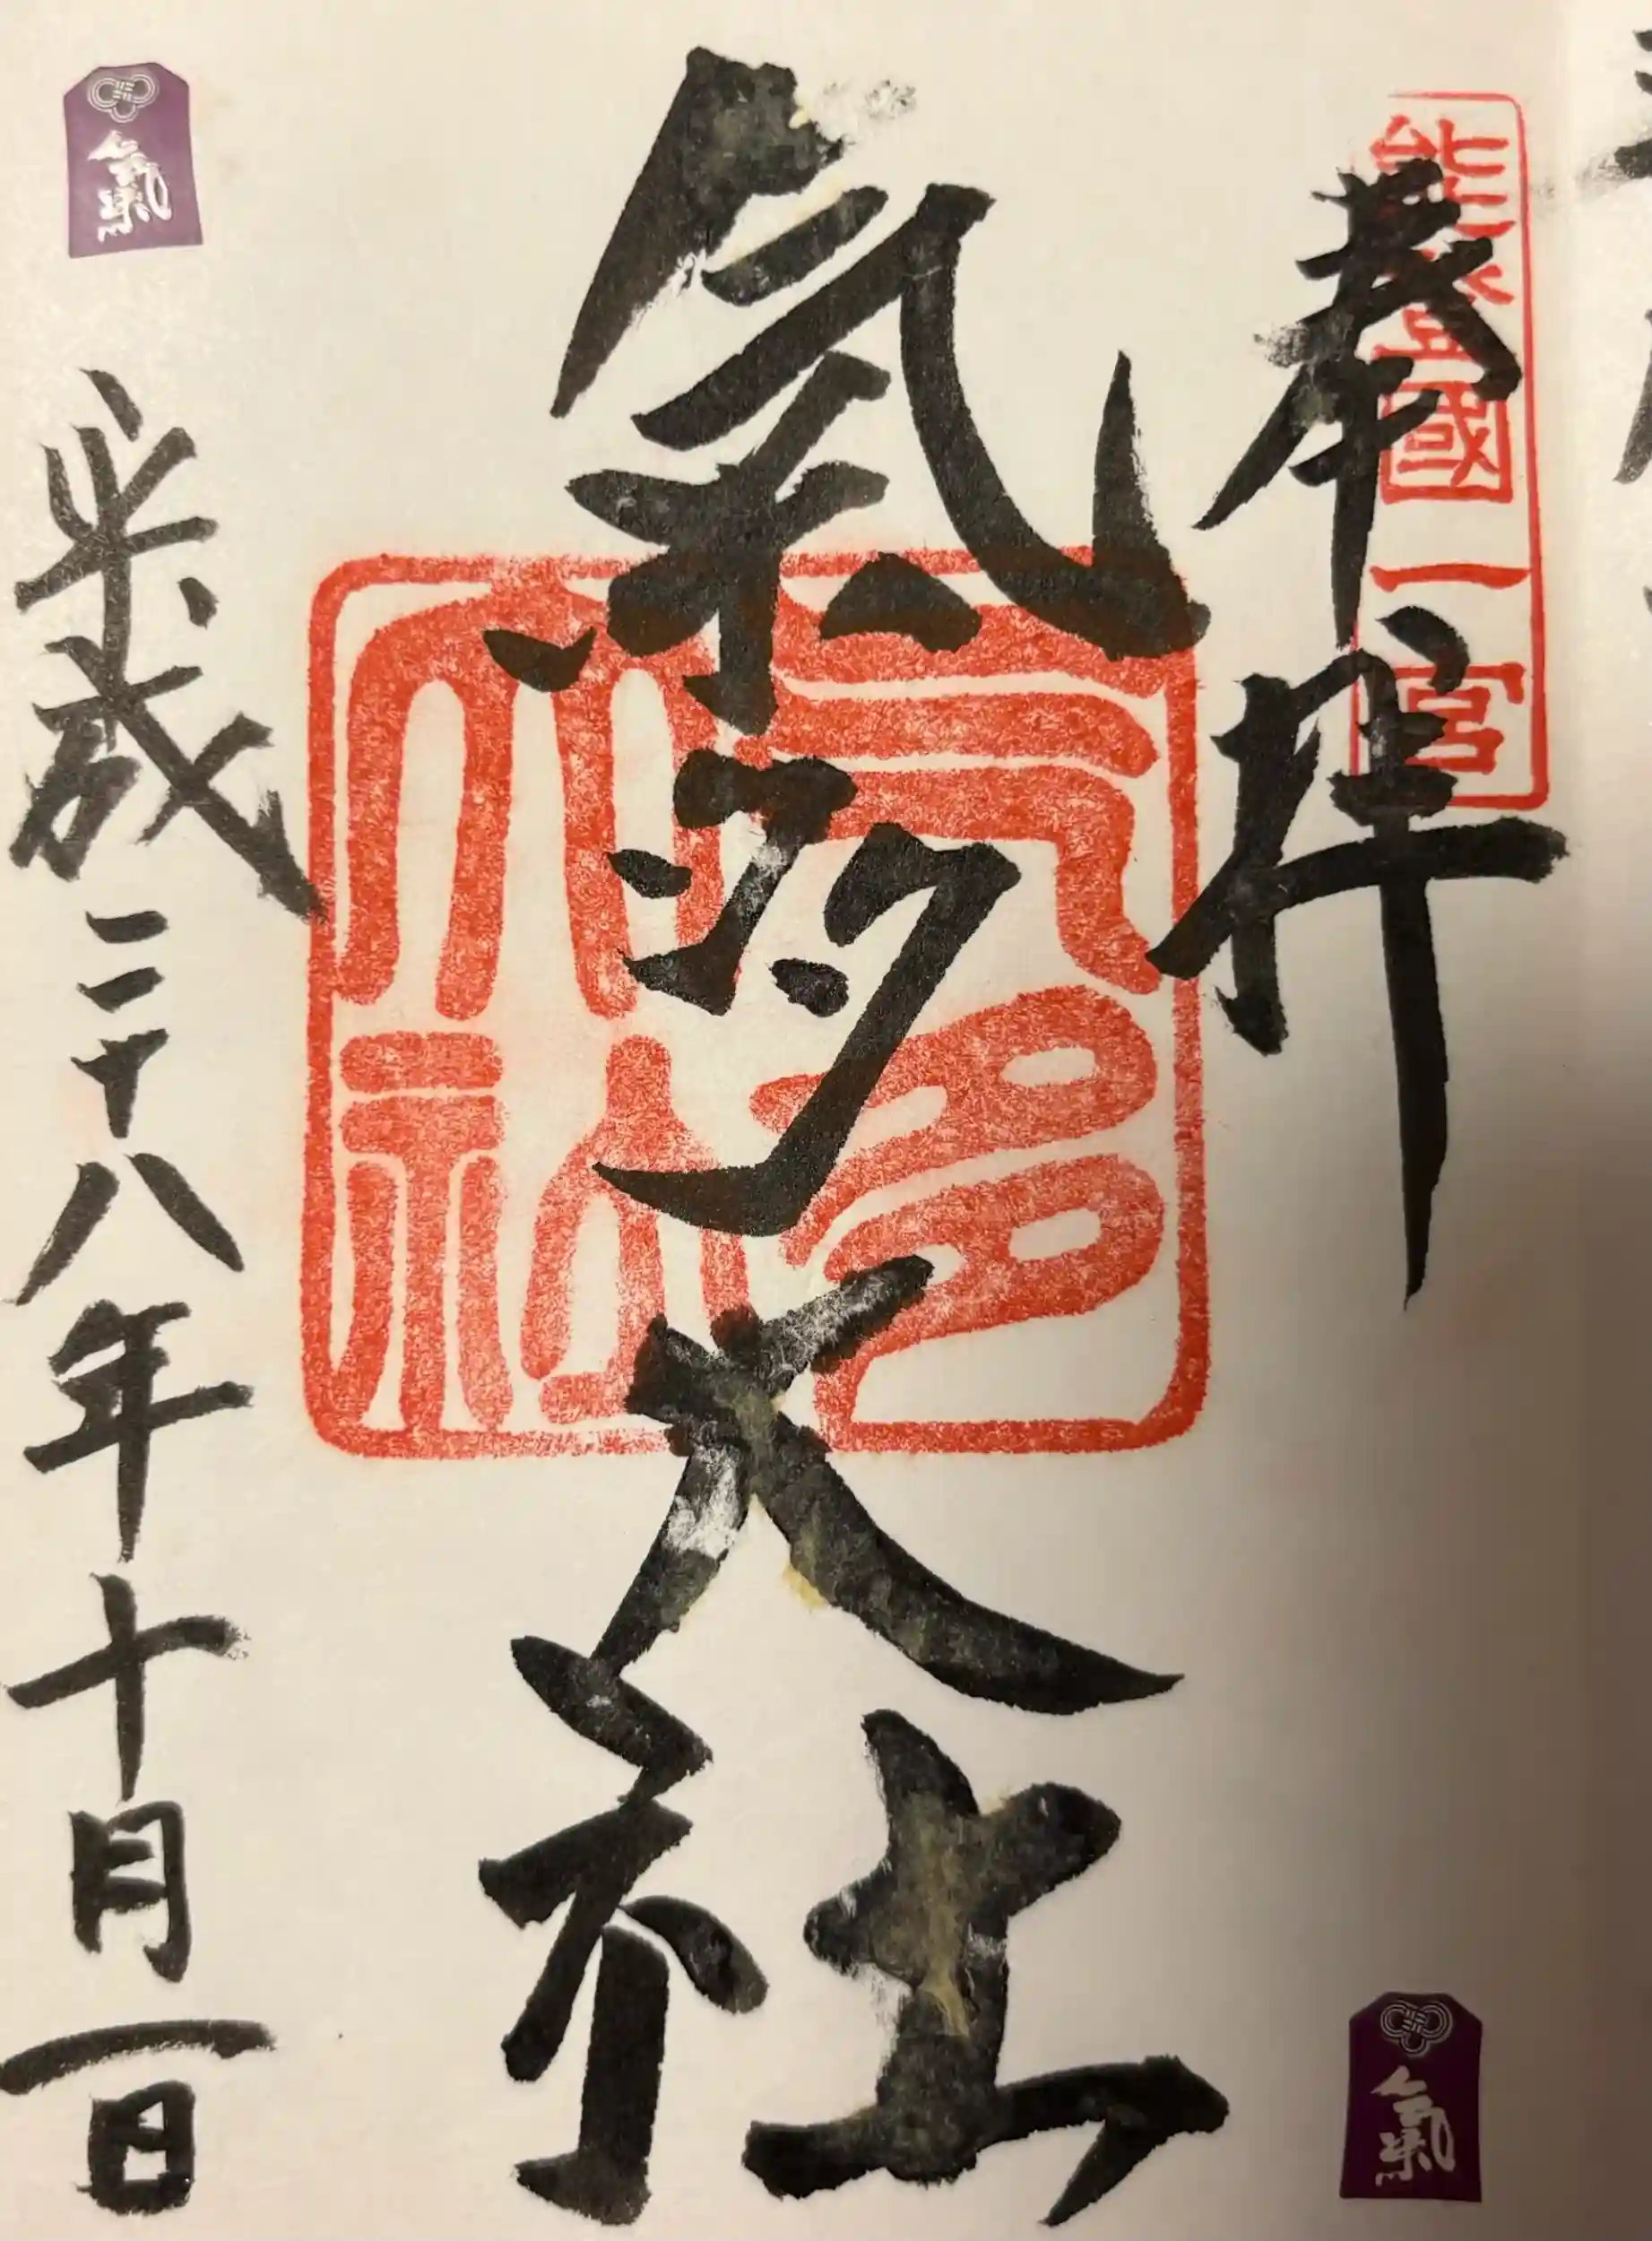 奉拝
能登國一宮
氣多大社
気多大社
平成二十八年十月一日
氣
氣